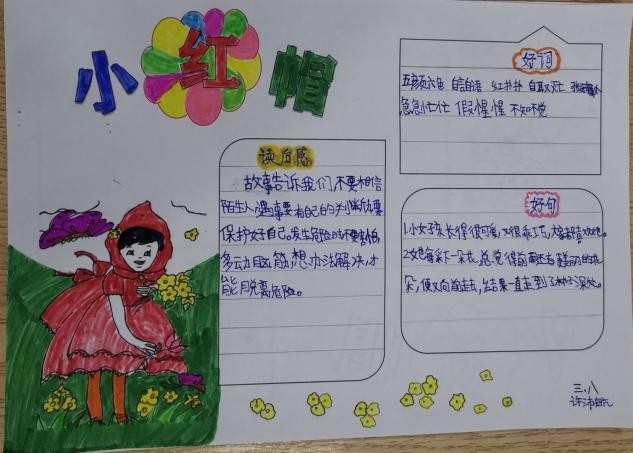 小红帽
好词
五颜六色 自言自语 红扑扑 自取灭
急急忙忙 假惺惺 不知不觉
读后感
故事告诉我们,不要相信
陌生人,遇事要有自己的判断,要
保护好自己。发生危险时不要害怕,
多动脑筋,想办法解决,才
能脱离危险。
好句
1.小女孩长得很可爱,又很乖巧,大家都喜欢她。
2.她每采下一朵花,总觉得前面还有美丽的花
朵,便又向前走去,结果一直走到了林子深处。
三.八
许沛